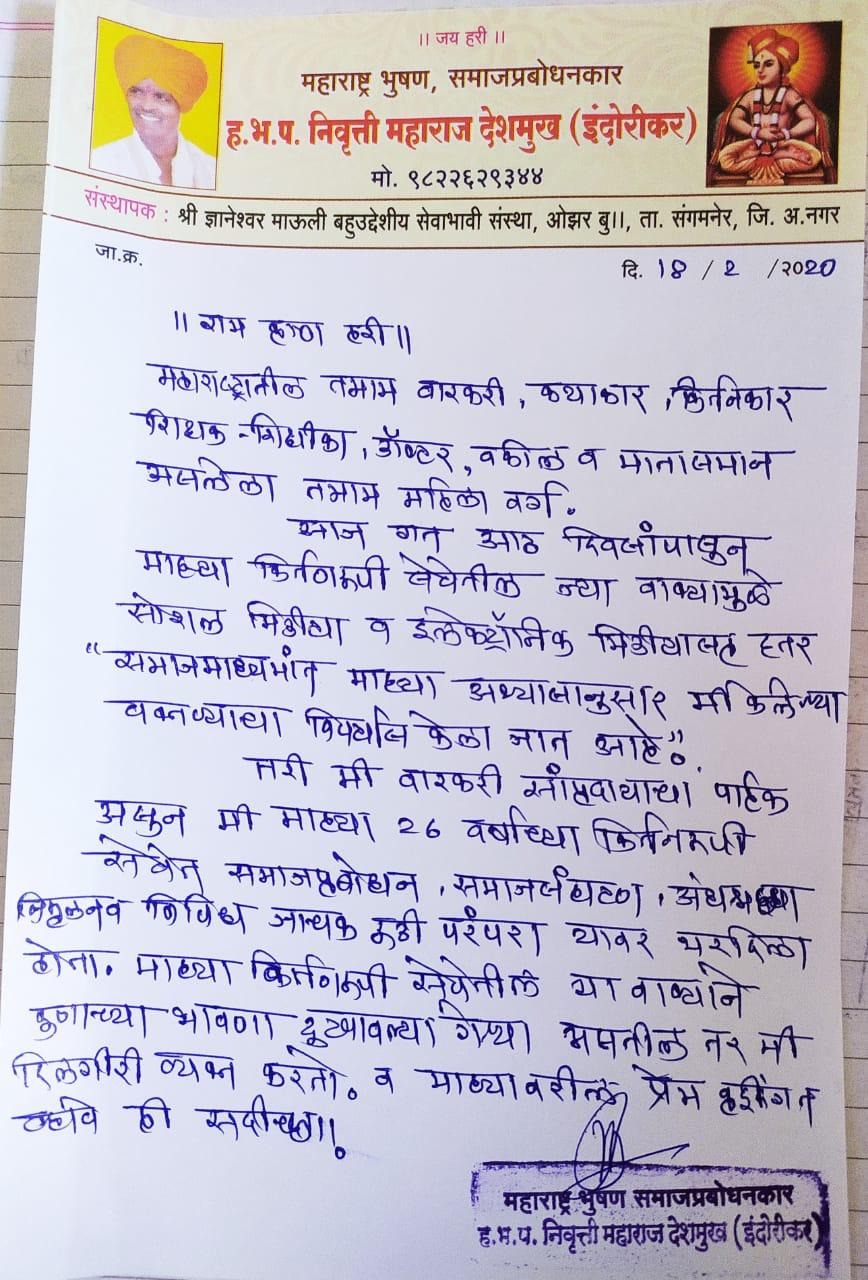 ॥ जय हरी ॥
महाराष्ट्र भुषण, समाजप्रबोधनकार
ह.भ.प. निवृत्ती महाराज देशमुख (इंदोरीकर)
मो. ९८२२६२९३४४
संस्थापक : श्री ज्ञानेश्वर माऊली बहुउद्देशीय सेवाभावी संस्था, ओझर बु॥, ता. संगमनेर, जि. अ.नगर
जा.क्र.
दि. 18 / 2 /२०20
॥ राम कृष्ण हरी॥
महाराष्ट्रातील तमाम वारकरी, कथाकार, किर्तनकार
शिक्षक-शिक्षीका, डॉक्टर, वकील व मातासमान
असलेला तमाम महिला वर्ग.
आज गत आठ दिवसांपासुन
माझ्या किर्तनरूपी सेवेतील ज्या वाक्यामुळे
सोशल मिडीया व इलेक्ट्रॉनिक मिडीयासह इतर
"समाजमाध्यमांत माझ्या अभ्यासानुसार मी केलेल्या
वक्तव्याचा विपर्यास केला जात आहे".
तरी मी वारकरी सांप्रदायाचा पाईक
असुन मी माझ्या 26 वर्षाच्या किर्तनरूपी
सेवेत समाजप्रबोधन, समाजसंघटण, अंधश्रध्दा
निमुलनव विविध जाचक रूढी परंपरा यावर भरदिला
होता. माझ्या किर्तनरूपी सेवेतील या वाक्याने
कुणाच्या भावणा दुखावल्या गेल्या असतील तर मी
दिलगीरी व्यक्त करतो. व माझ्यावरील प्रेम वृध्दींगत
व्हावे ही सदीच्छा॥.
महाराष्ट्र भुषण समाजप्रबोधनकार
ह.भ.प. निवृत्ती महाराज देशमुख (इंदोरीकर)